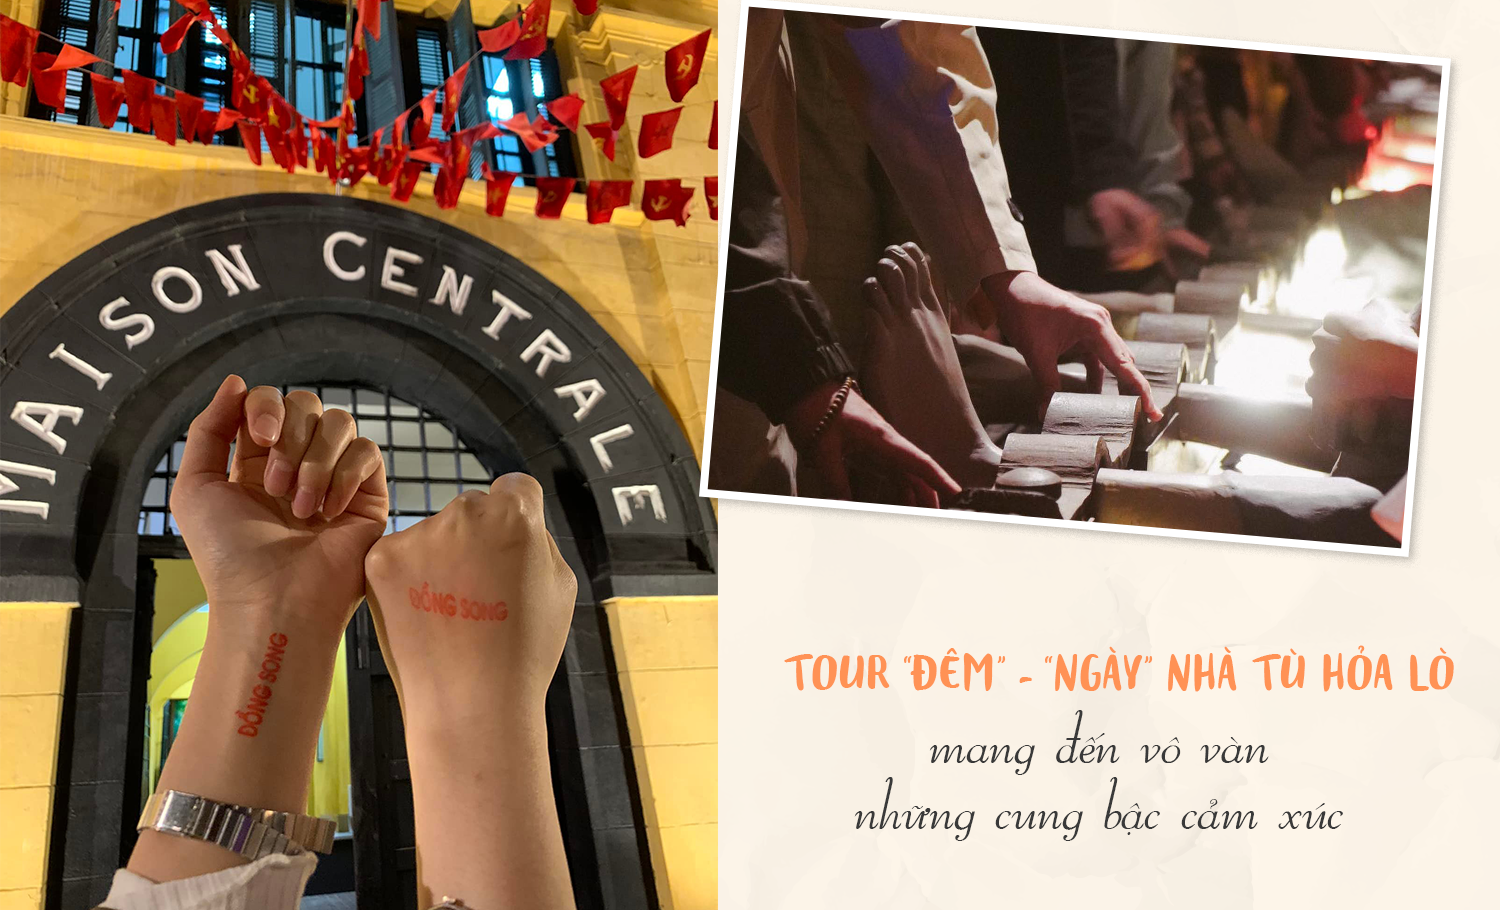 MAISON CENTRALE
ĐỒNG SONG
ĐỒNG SONG
TOUR “ĐÊM” - “NGÀY” NHÀ TÙ HỎA LÒ
mang đến vô vàn
những cung bậc cảm xúc